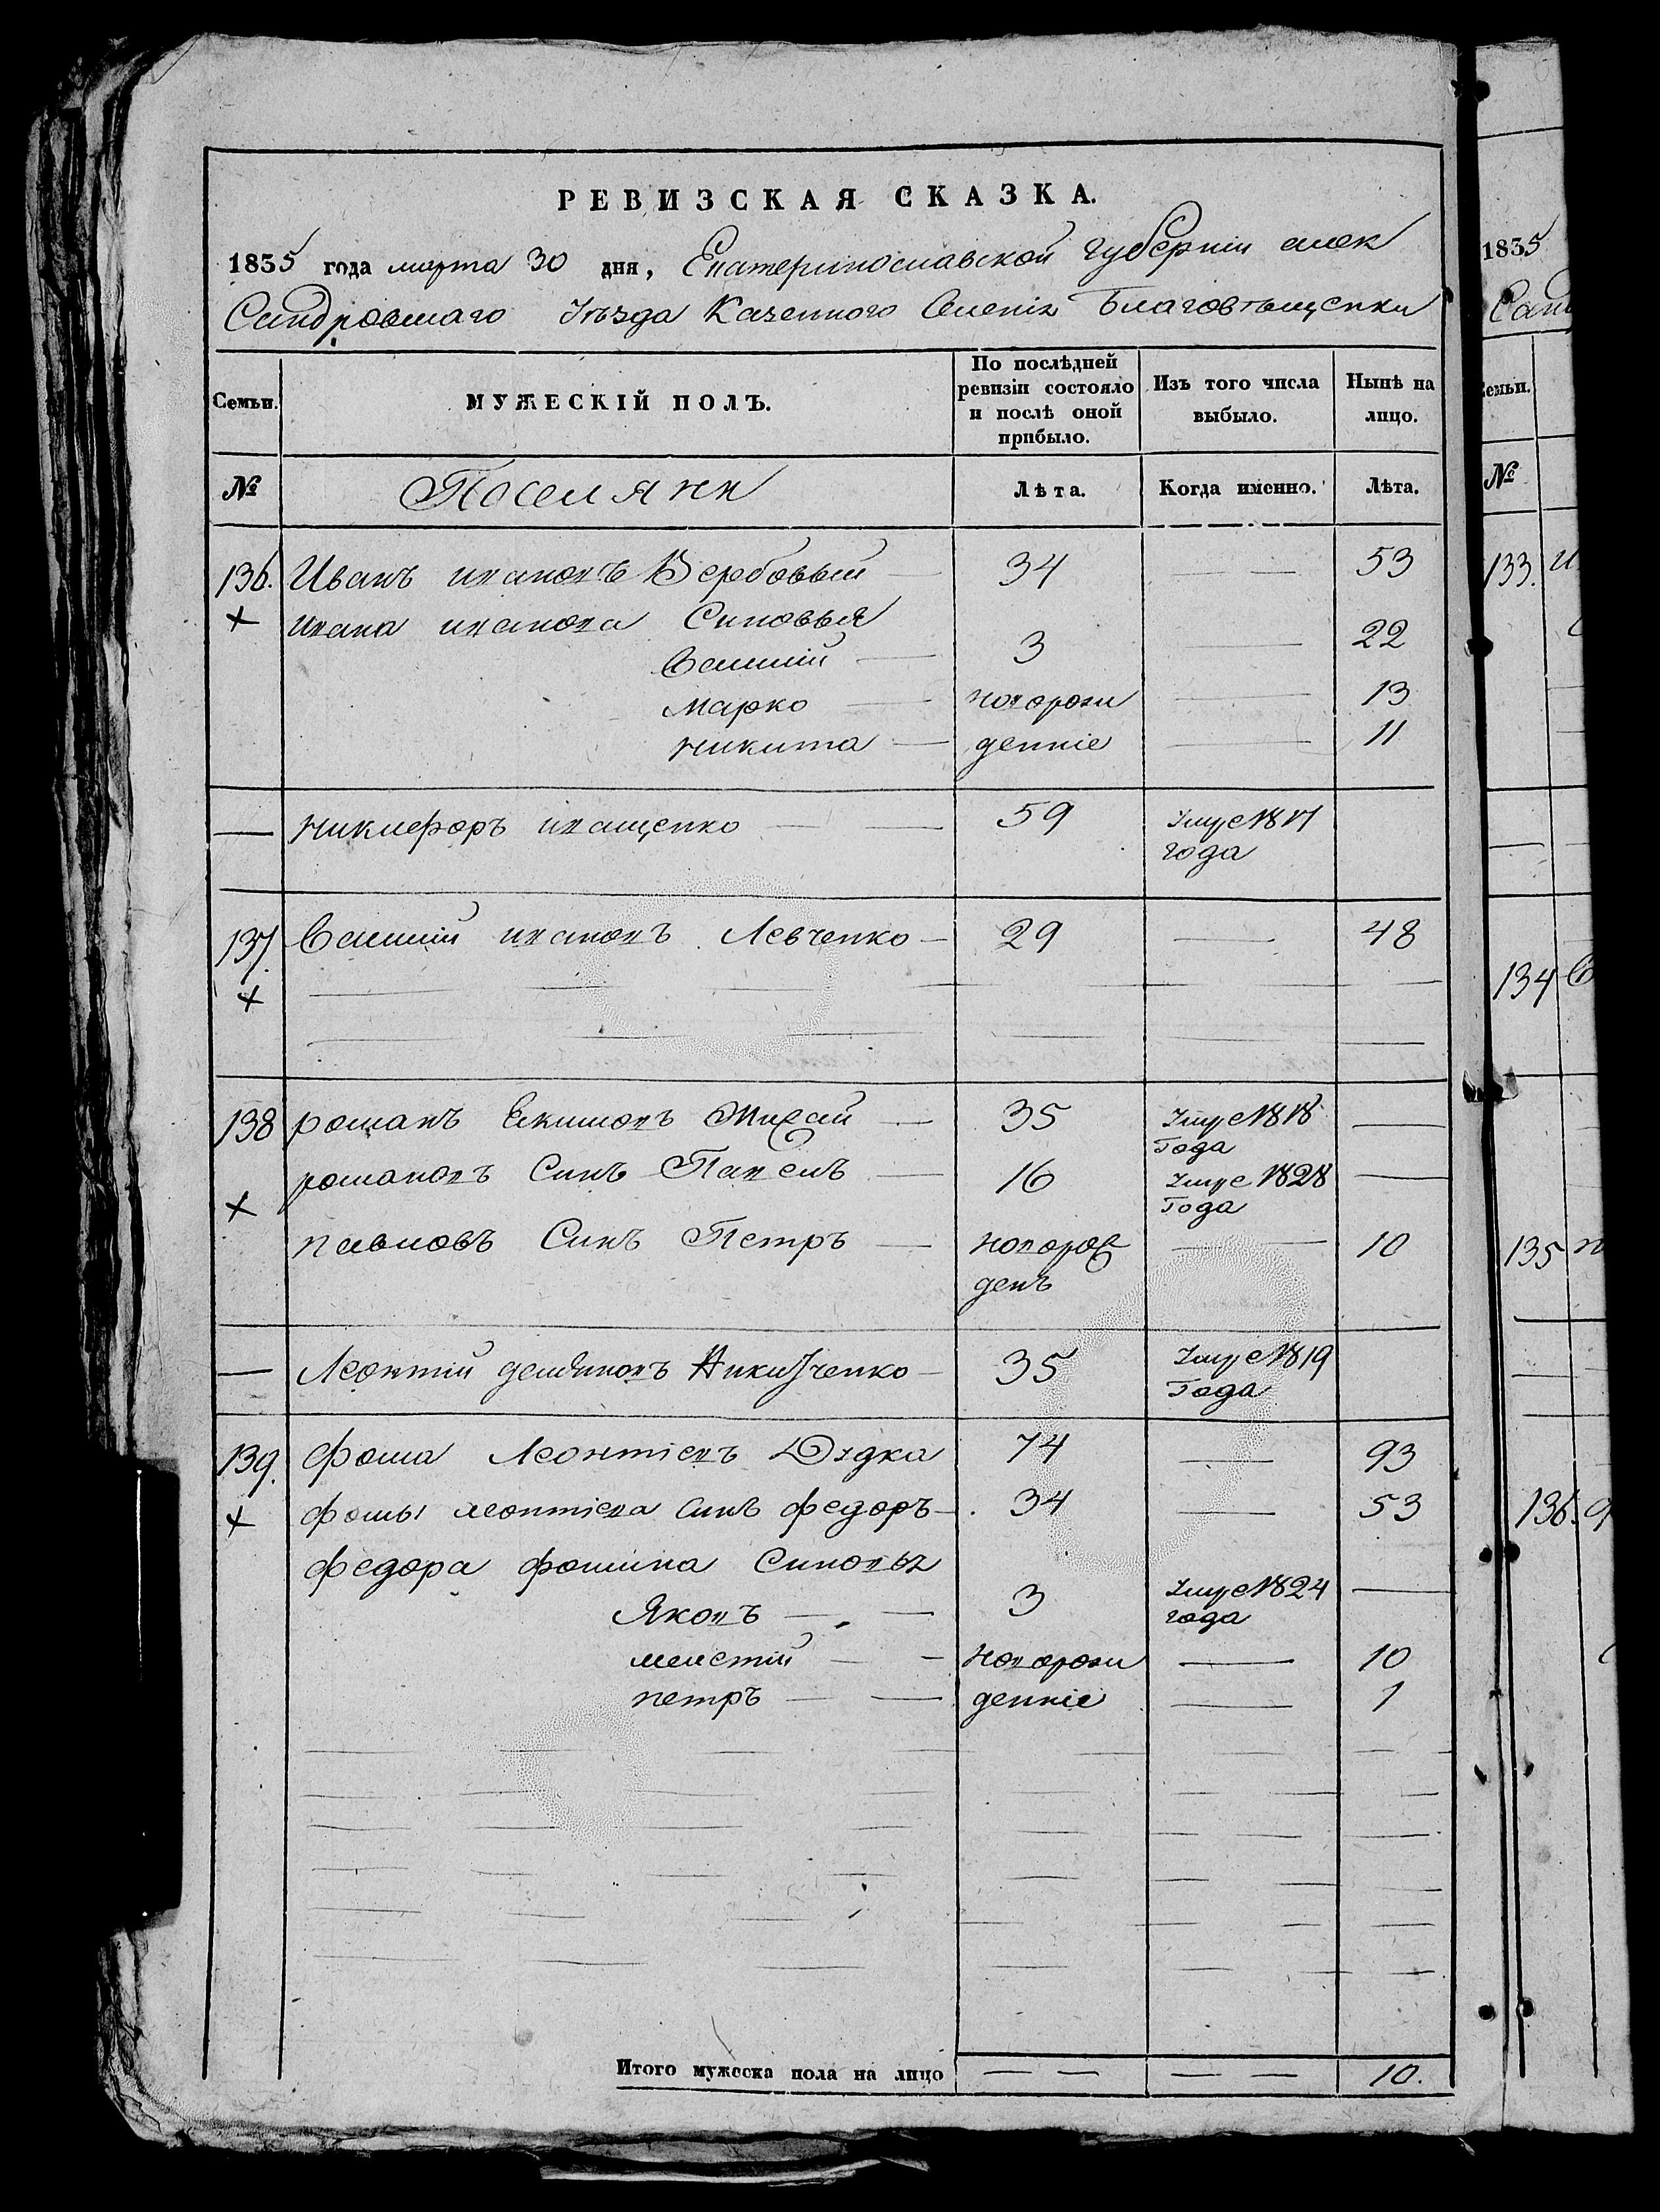 РЕВИЗСКАЯ СКАЗКА.
1835 года марта 30 дня, Екатеринославской губерніи алек
Сандровскаго Уѣзда Казенного Селенія Благовѣщенки
Семьи. МУЖЕСКІЙ ПОЛЪ. По послѣдней ревизіи состояло и послѣ оной прибыло. Изъ того числа выбыло. Нынѣ на лицо.
№ Поселяне Лѣта. Когда именно. Лѣта.
136. Иванъ ивановъ Вербовый 34 53
× ивана иванова Синовья
Василій 3 22
марко новорож 13
никита денніе 11
никифоръ иващенко 59 Умре 1817
года
137. Василій ивановъ Левченко 29 48
×
138 романъ Екимовъ 35 Умре 1818
Года
романовъ Синъ Павелъ 16 Умре 1828
× Года
павловъ Синъ Петръ новорож 10
денъ
Леонтій 35 Умре 1819
Года
139. фома Леонтіевъ Дядка 74 93
× фомы леонтіева синъ федоръ 34 53
федора фомина Синовья
Яковъ 3 Умре 1824
года
новорож 10
петръ денніе 1
Итого мужеска пола на лицо 10.
1835
Санд
Семьи.
№
133. И
134
135
136.